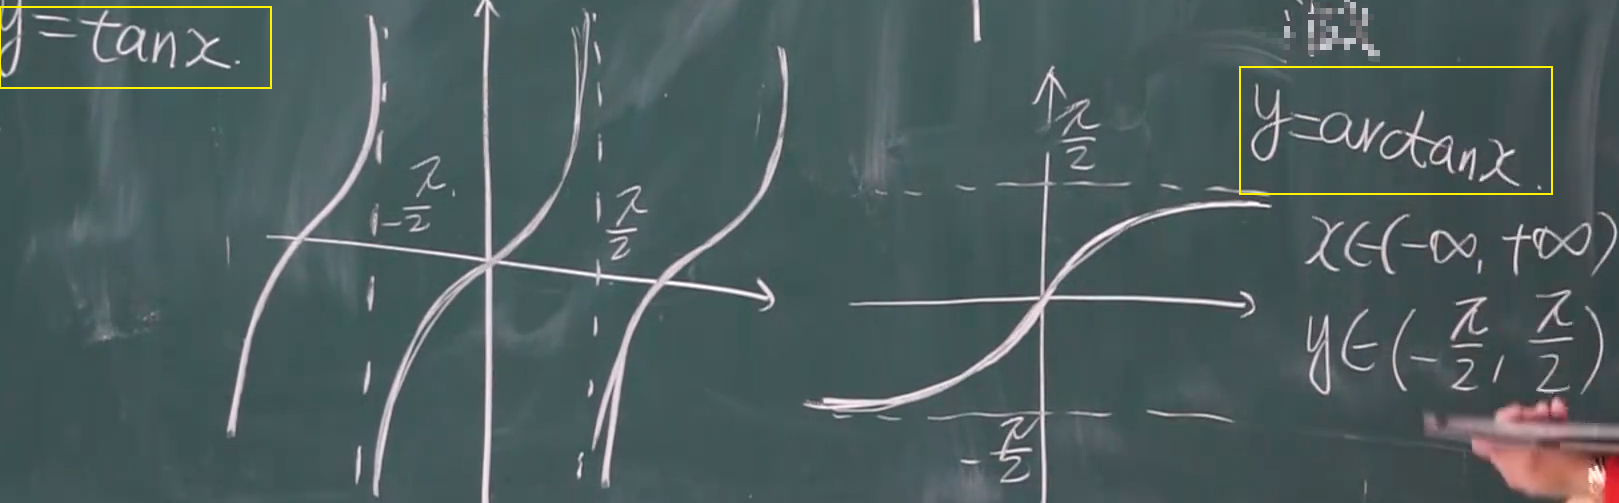 y=tanx.
-π/2
π/2
π/2
-π/2
y=arctanx.
x∈(-∞,+∞)
y∈(-π/2,π/2)